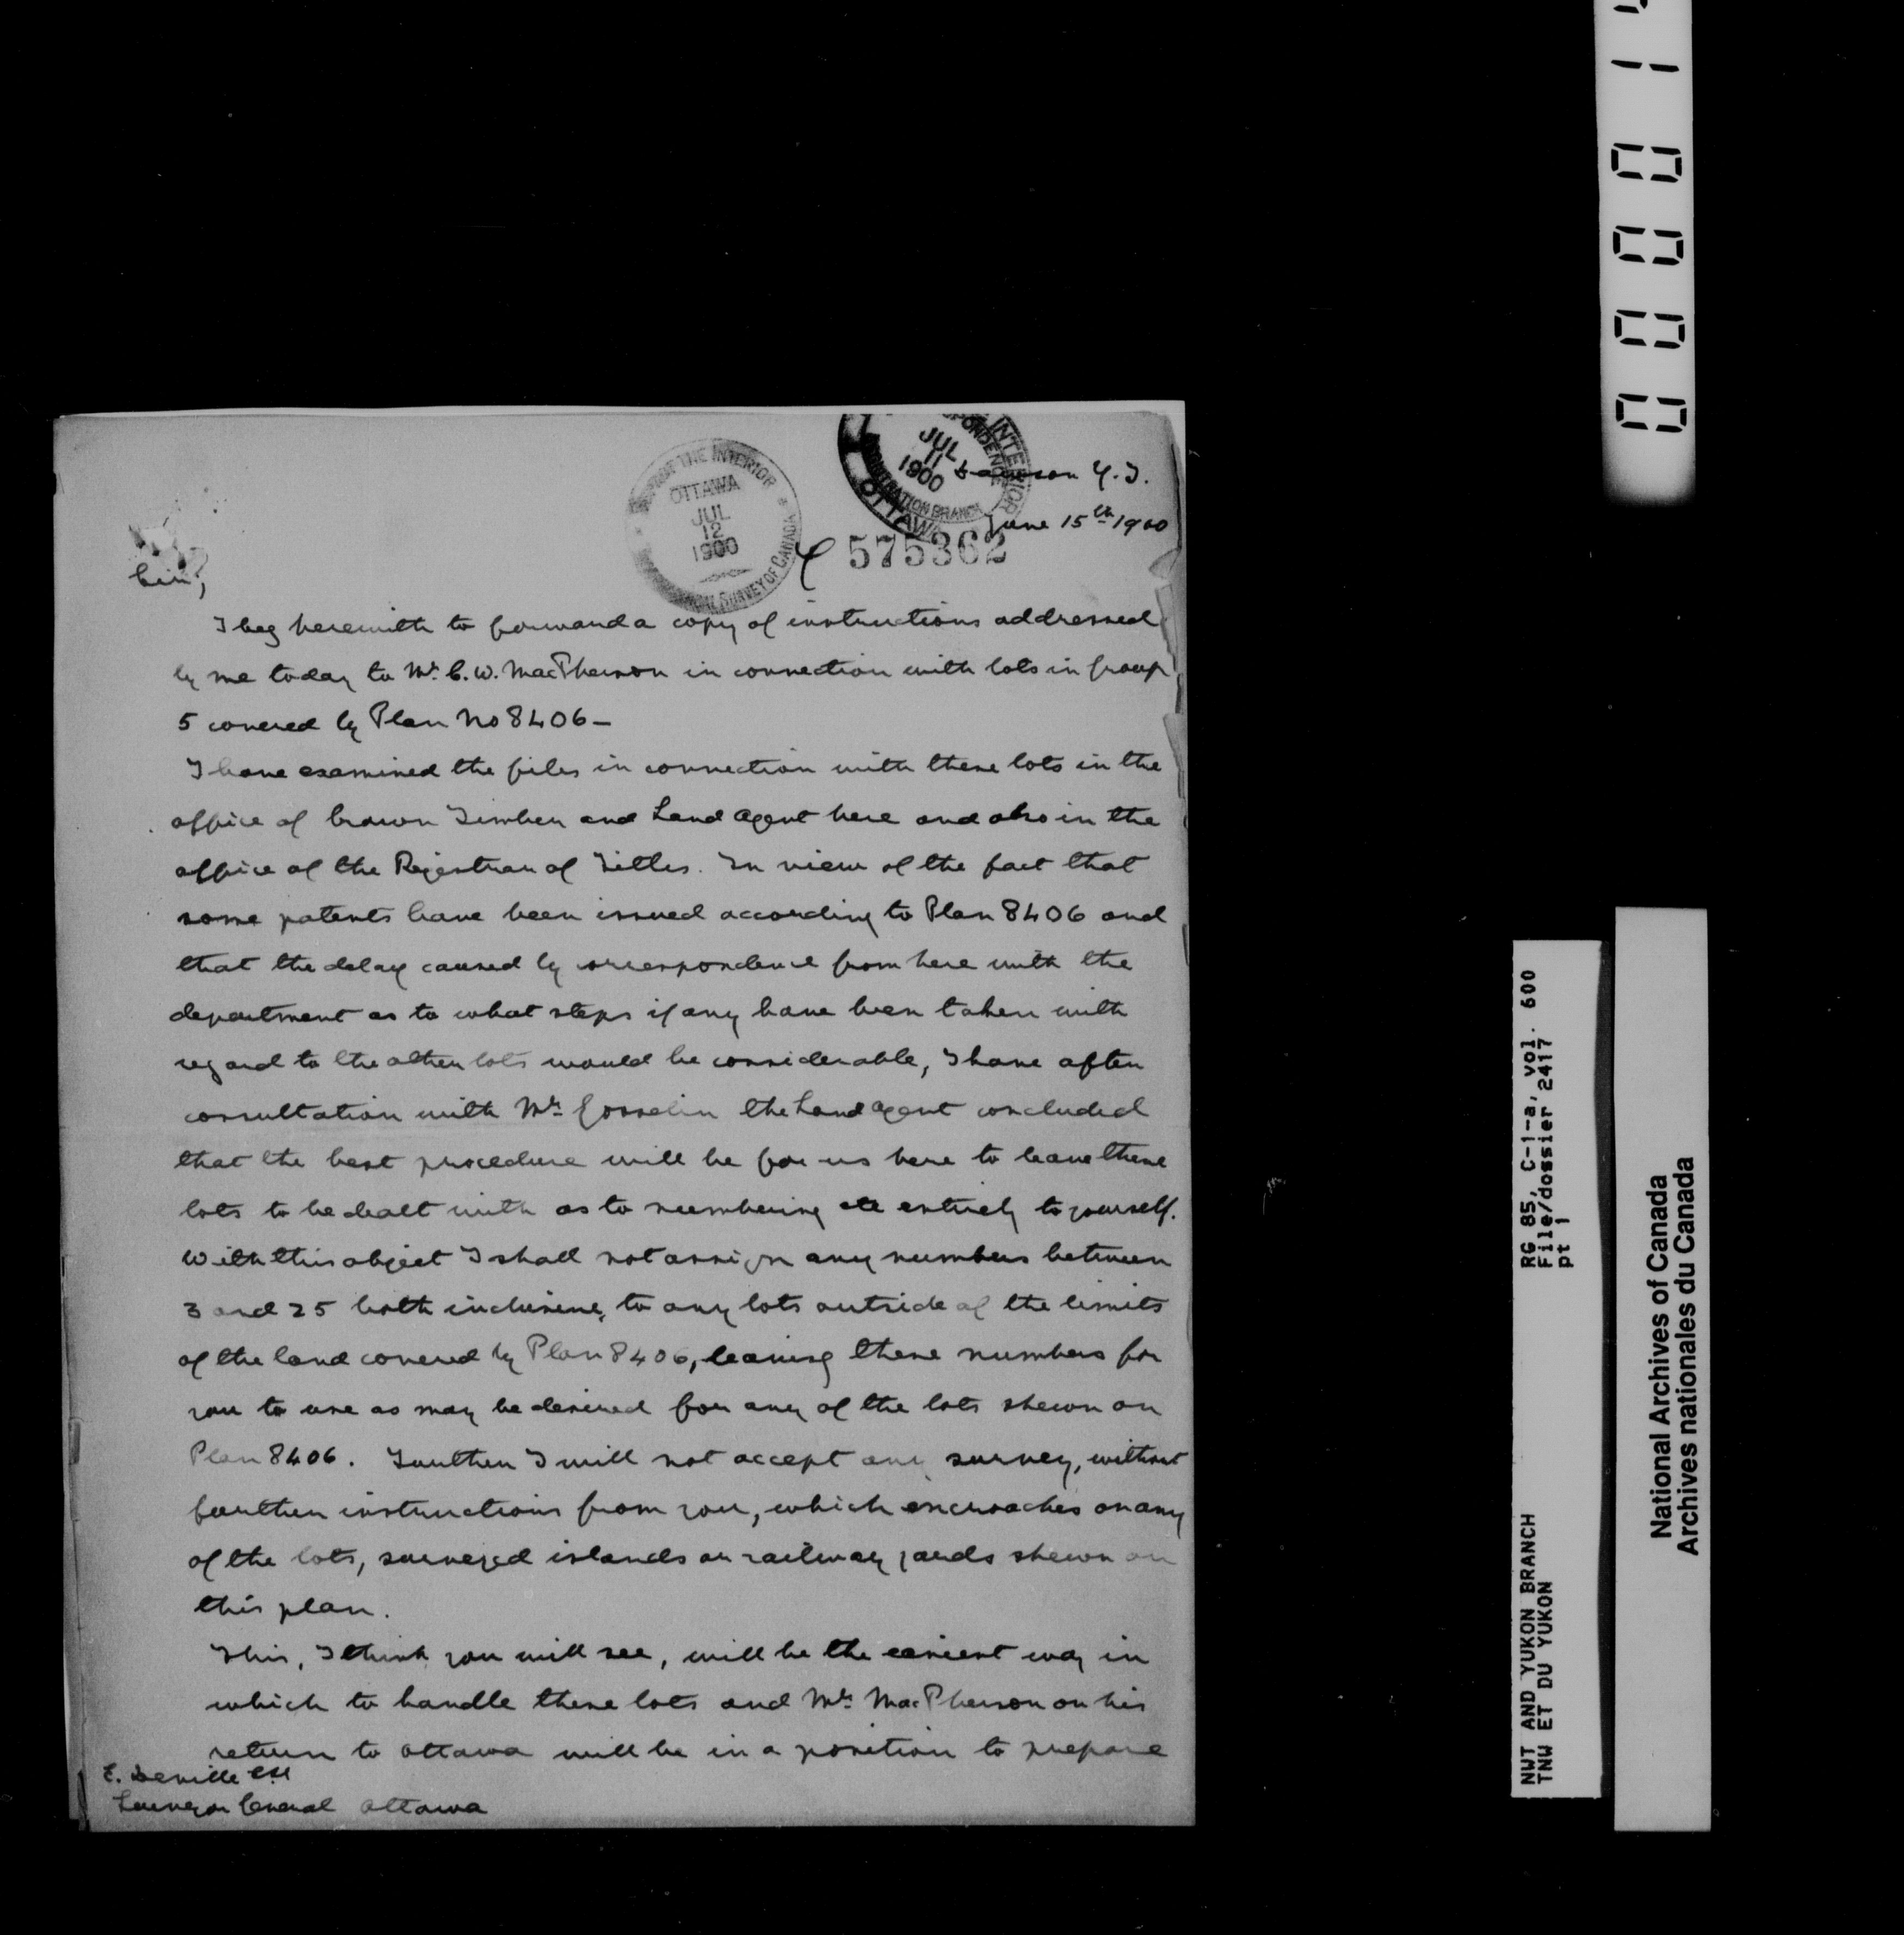 DEPT OF THE INTERIOR
OTTAWA
JUL
12
1900
SURVEY OF CANADA
INTERIOR
JUL
11
1900
BRANCH
OTTAWA
Dawson Y.T.
June 15th 1900
575362
Sir,
I beg herewith to forward a copy of instructions addressed
by me today to Mr. C. W. MacPherson in connection with lots in Group
5 covered by Plan No 8406 –
I have examined the files in connection with these lots in the
office of Crown Timber and Land Agent here and also in the
office of the Registrar of Titles. In view of the fact that
some patents have been issued according to Plan 8406 and
that the delay caused by correspondence from here with the
department as to what steps if any have been taken with
regard to the other lots would be considerable, I have after
consultation with Mr. Gosselin the Land Agent concluded
that the best procedure will be for us here to leave these
lots to be dealt with as to numbering etc entirely to yourself.
With this object I shall not assign any numbers between
3 and 25 both inclusive, to any lots outside of the limits
of the land covered by Plan 8406, leaving these numbers for
you to use as may be desired for any of the lots shewn on
Plan 8406. Further I will not accept any survey, without
further instructions from you, which encroaches on any
of the lots, surveyed islands or railway yards shewn on
this plan.
This, I think you will see, will be the easiest way in
which to handle these lots and Mr. MacPherson on his
return to Ottawa will be in a position to prepare
E. Deville Esq
Surveyor General Ottawa
RG 85, C-1-a, vol. 600
File/dossier 2417
pt 1
NWT AND YUKON BRANCH
TNW ET DU YUKON
National Archives of Canada
Archives nationales du Canada